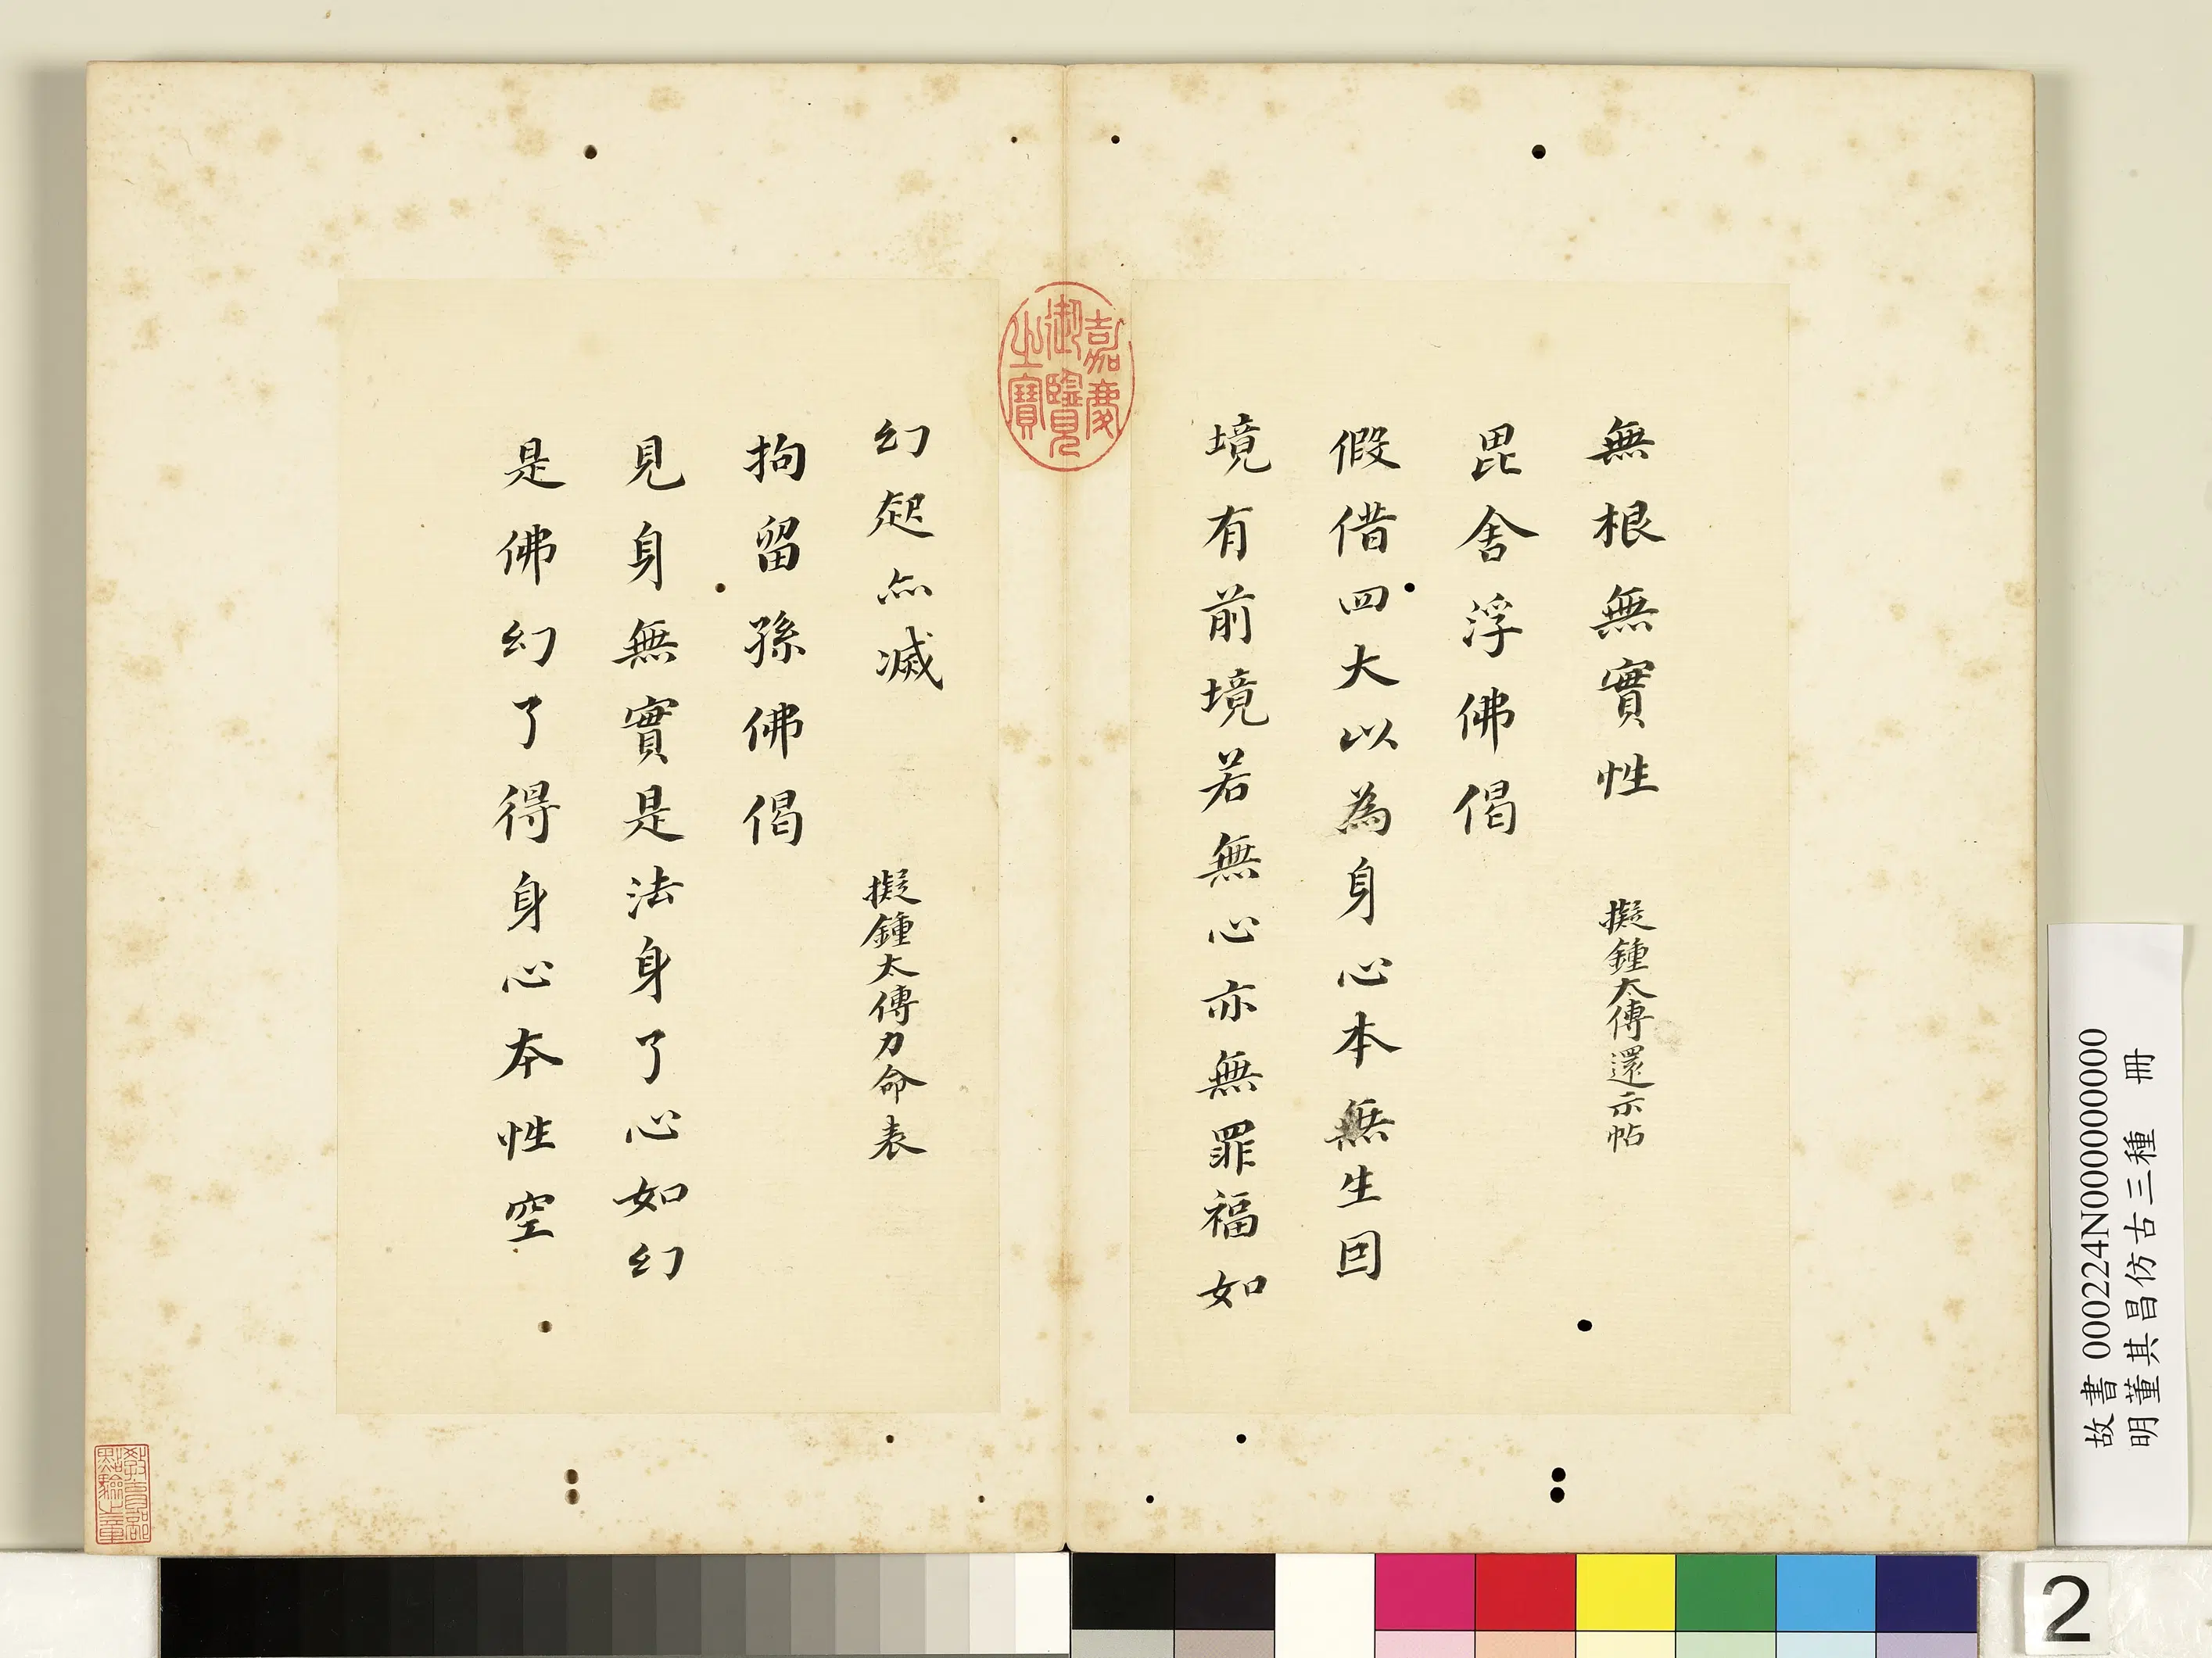 無根無實性 擬鍾太傅還示帖
毘舍浮佛偈
假借四大以為身心本無生因
境有前境若無心亦無罪福如
嘉慶御覽之寶
幻起亦滅 擬鍾太傅力命表
拘留孫佛偈
見身無實是法身了心如幻
是佛幻了得身心本性空
教育部點驗之章
故書 000224N000000000
明董其昌仿古三種 冊
2